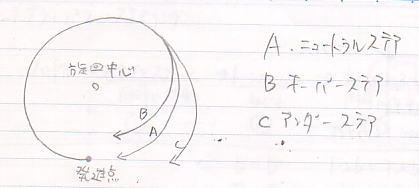 A. ニュートラルステア
旋回中心
B オーバーステア
B
A
C
C アンダーステア
発進点